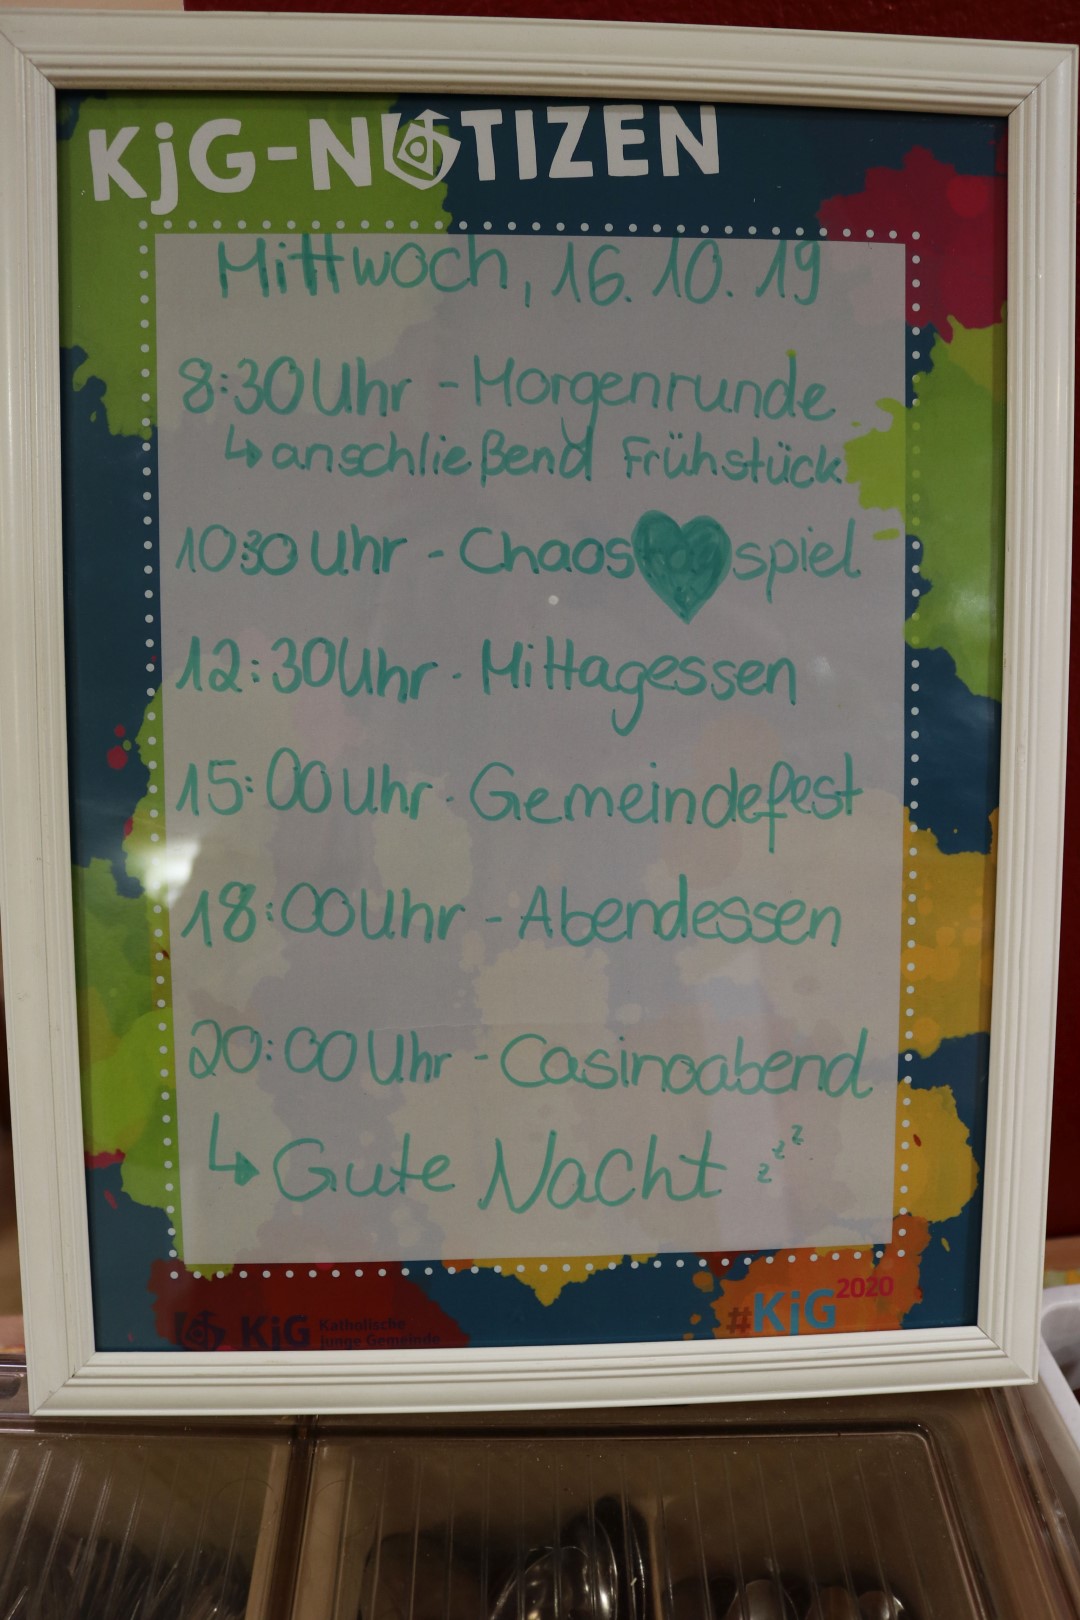 KjG-NOTIZEN
Mittwoch, 16.10.19
8:30 Uhr - Morgenrunde
↳ anschließend Frühstück
10:30 Uhr - Chaos spiel
12:30 Uhr - Mittagessen
15:00 Uhr - Gemeindefest
18:00 Uhr - Abendessen
20:00 Uhr - Casinoabend
↳ Gute Nacht z z z
KjG Katholische
junge Gemeinde
#KjG2020